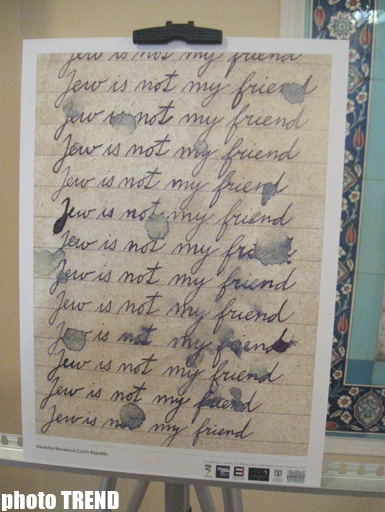 Jew is not my friend
Jew is not my friend
Jew is not my friend
Jew is not my friend
Jew is not my friend
Jew is not my friend
Jew is not my friend
Jew is not my friend
Jew is not my friend
Jew is not my friend
Jew is not my friend
Jew is not my friend
Jew is not my friend
Veronika Nováková Czech Republic
photo TREND